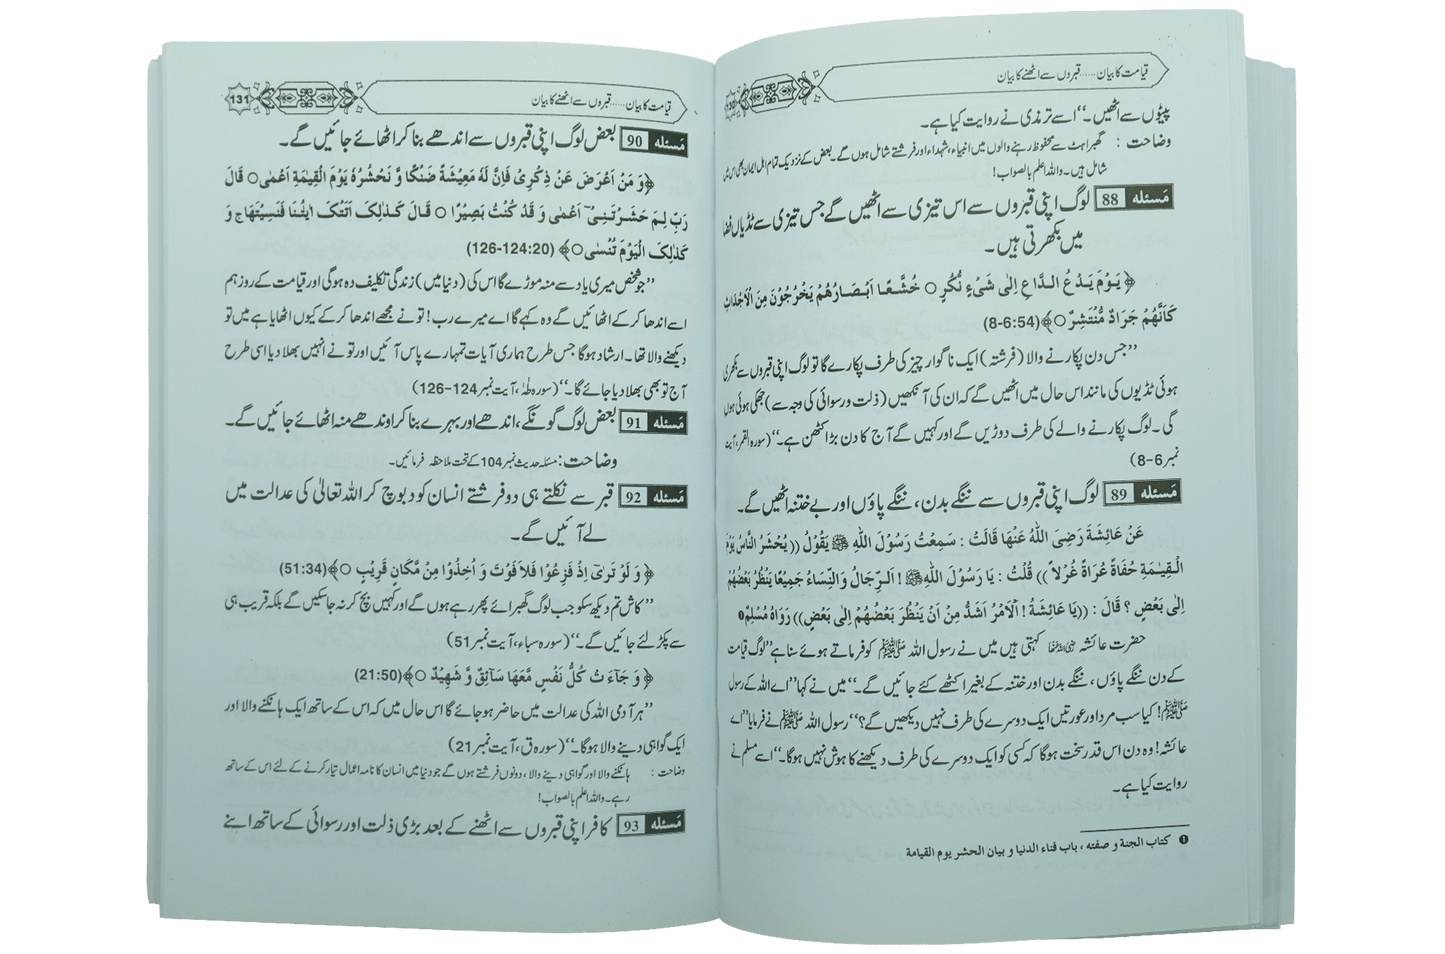 قیامت کا بیان......قبروں سے اٹھنے کا بیان
130
پیٹوں سے اٹھیں۔‘‘ اسے ترمذی نے روایت کیا ہے۔
وضاحت : گھبراہٹ سے محفوظ رہنے والوں میں انبیاء، شہداء اور فرشتے شامل ہوں گے۔ بعض کے نزدیک تمام اہل ایمان بھی اس میں
شامل ہیں۔ واللہ اعلم بالصواب!
مسئلہ 88 لوگ اپنی قبروں سے اس تیزی سے اٹھیں گے جس تیزی سے ٹڈیاں فضا
میں بکھرتی ہیں۔
﴿ يَوْمَ يَدْعُ الدَّاعِ اِلٰى شَىْءٍ نُّكُرٍ ○ خُشَّعًا اَبْصَارُهُمْ يَخْرُجُوْنَ مِنَ الْاَجْدَاثِ
كَاَنَّهُمْ جَرَادٌ مُّنْتَشِرٌ ○﴾(54:6-8)
’’جس دن پکارنے والا (فرشتہ) ایک ناگوار چیز کی طرف پکارے گا تو لوگ اپنی قبروں سے بکھری
ہوئی ٹڈیوں کی مانند اس حال میں اٹھیں گے کہ ان کی آنکھیں (ذلت و رسوائی کی وجہ سے) جھکی ہوئی ہوں
گی۔ لوگ پکارنے والے کی طرف دوڑیں گے اور کہیں گے آج کا دن بڑا کٹھن ہے۔‘‘ (سورہ القمر، آیت
نمبر 6-8)
مسئلہ 89 لوگ اپنی قبروں سے ننگے بدن، ننگے پاؤں اور بے ختنہ اٹھیں گے۔
عَنْ عَائِشَةَ رَضِىَ اللّٰهُ عَنْهَا قَالَتْ : سَمِعْتُ رَسُوْلَ اللّٰهِ ﷺ يَقُوْلُ (( يُحْشَرُ النَّاسُ يَوْمَ
الْقِيٰمَةِ حُفَاةً عُرَاةً غُرْلاً )) قُلْتُ : يَا رَسُوْلَ اللّٰهِ ﷺ ! اَلرِّجَالُ وَالنِّسَاءُ جَمِيْعًا يَنْظُرُ بَعْضُهُمْ
اِلٰى بَعْضٍ ؟ قَالَ : ((يَا عَائِشَةُ ! اَلْاَمْرُ اَشَدُّ مِنْ اَنْ يَنْظُرَ بَعْضُهُمْ اِلٰى بَعْضٍ)) رَوَاهُ مُسْلِمٌ❶
حضرت عائشہ رضی اللہ عنہا کہتی ہیں میں نے رسول اللہ ﷺ کو فرماتے ہوئے سنا ہے ’’لوگ قیامت
کے دن ننگے پاؤں، ننگے بدن اور ختنہ کے بغیر اکٹھے کئے جائیں گے۔‘‘ میں نے کہا ’’اے اللہ کے رسول
ﷺ! کیا سب مرد اور عورتیں ایک دوسرے کی طرف نہیں دیکھیں گے؟‘‘ رسول اللہ ﷺ نے فرمایا ’’اے
عائشہ! وہ دن اس قدر سخت ہوگا کہ کسی کو ایک دوسرے کی طرف دیکھنے کا ہوش نہیں ہوگا۔‘‘ اسے مسلم نے
روایت کیا ہے۔
❶ كتاب الجنة و صفته ، باب فناء الدنيا و بيان الحشر يوم القيامة
قیامت کا بیان......قبروں سے اٹھنے کا بیان
131
مسئلہ 90 بعض لوگ اپنی قبروں سے اندھے بنا کر اٹھائے جائیں گے۔
﴿وَ مَنْ اَعْرَضَ عَنْ ذِكْرِىْ فَاِنَّ لَهٗ مَعِيْشَةً ضَنْكًا وَّ نَحْشُرُهٗ يَوْمَ الْقِيٰمَةِ اَعْمٰى○ قَالَ
رَبِّ لِمَ حَشَرْتَنِىْٓ اَعْمٰى وَ قَدْ كُنْتُ بَصِيْرًا ○ قَالَ كَذٰلِكَ اَتَتْكَ اٰيٰتُنَا فَنَسِيْتَهَا ج وَ
كَذٰلِكَ الْيَوْمَ تُنْسٰى○﴾ (20:124-126)
’’جو شخص میری یاد سے منہ موڑے گا اس کی (دنیا میں) زندگی تکلیف دہ ہوگی اور قیامت کے روز ہم
اسے اندھا کر کے اٹھائیں گے وہ کہے گا اے میرے رب! تو نے مجھے اندھا کر کے کیوں اٹھایا ہے میں تو
دیکھنے والا تھا۔ ارشاد ہوگا جس طرح ہماری آیات تمہارے پاس آئیں اور تو نے انہیں بھلا دیا اسی طرح
آج تو بھی بھلا دیا جائے گا۔‘‘ (سورہ طٰہٰ، آیت نمبر 124-126)
مسئلہ 91 بعض لوگ گونگے، اندھے اور بہرے بنا کر اوندھے منہ اٹھائے جائیں گے۔
وضاحت: مسئلہ حدیث نمبر 104 کے تحت ملاحظہ فرمائیں۔
مسئلہ 92 قبر سے نکلتے ہی دو فرشتے انسان کو دبوچ کر اللہ تعالیٰ کی عدالت میں
لے آئیں گے۔
﴿ وَ لَوْ تَرٰىٓ اِذْ فَزِعُوْا فَلاَ فَوْتَ وَ اُخِذُوْا مِنْ مَّكَانٍ قَرِيْبٍ ○﴾(51:34)
’’کاش تم دیکھ سکو جب لوگ گھبرائے پھر رہے ہوں گے اور کہیں بچ کر نہ جا سکیں گے بلکہ قریب ہی
سے پکڑ لئے جائیں گے۔‘‘ (سورہ سباء، آیت نمبر 51)
﴿ وَ جَآءَ تْ كُلُّ نَفْسٍ مَّعَهَا سَآئِقٌ وَّ شَهِيْدٌ ○﴾(21:50)
’’ہر آدمی اللہ کی عدالت میں حاضر ہو جائے گا اس حال میں کہ اس کے ساتھ ایک ہانکنے والا اور
ایک گواہی دینے والا ہوگا۔‘‘ (سورہ ق، آیت نمبر 21)
وضاحت : ہانکنے والا اور گواہی دینے والا، دونوں فرشتے ہوں گے جو دنیا میں انسان کا نامہ اعمال تیار کرنے کے لئے اس کے ساتھ
رہے۔ واللہ اعلم بالصواب!
مسئلہ 93 کافر اپنی قبروں سے اٹھنے کے بعد بڑی ذلت اور رسوائی کے ساتھ اپنے